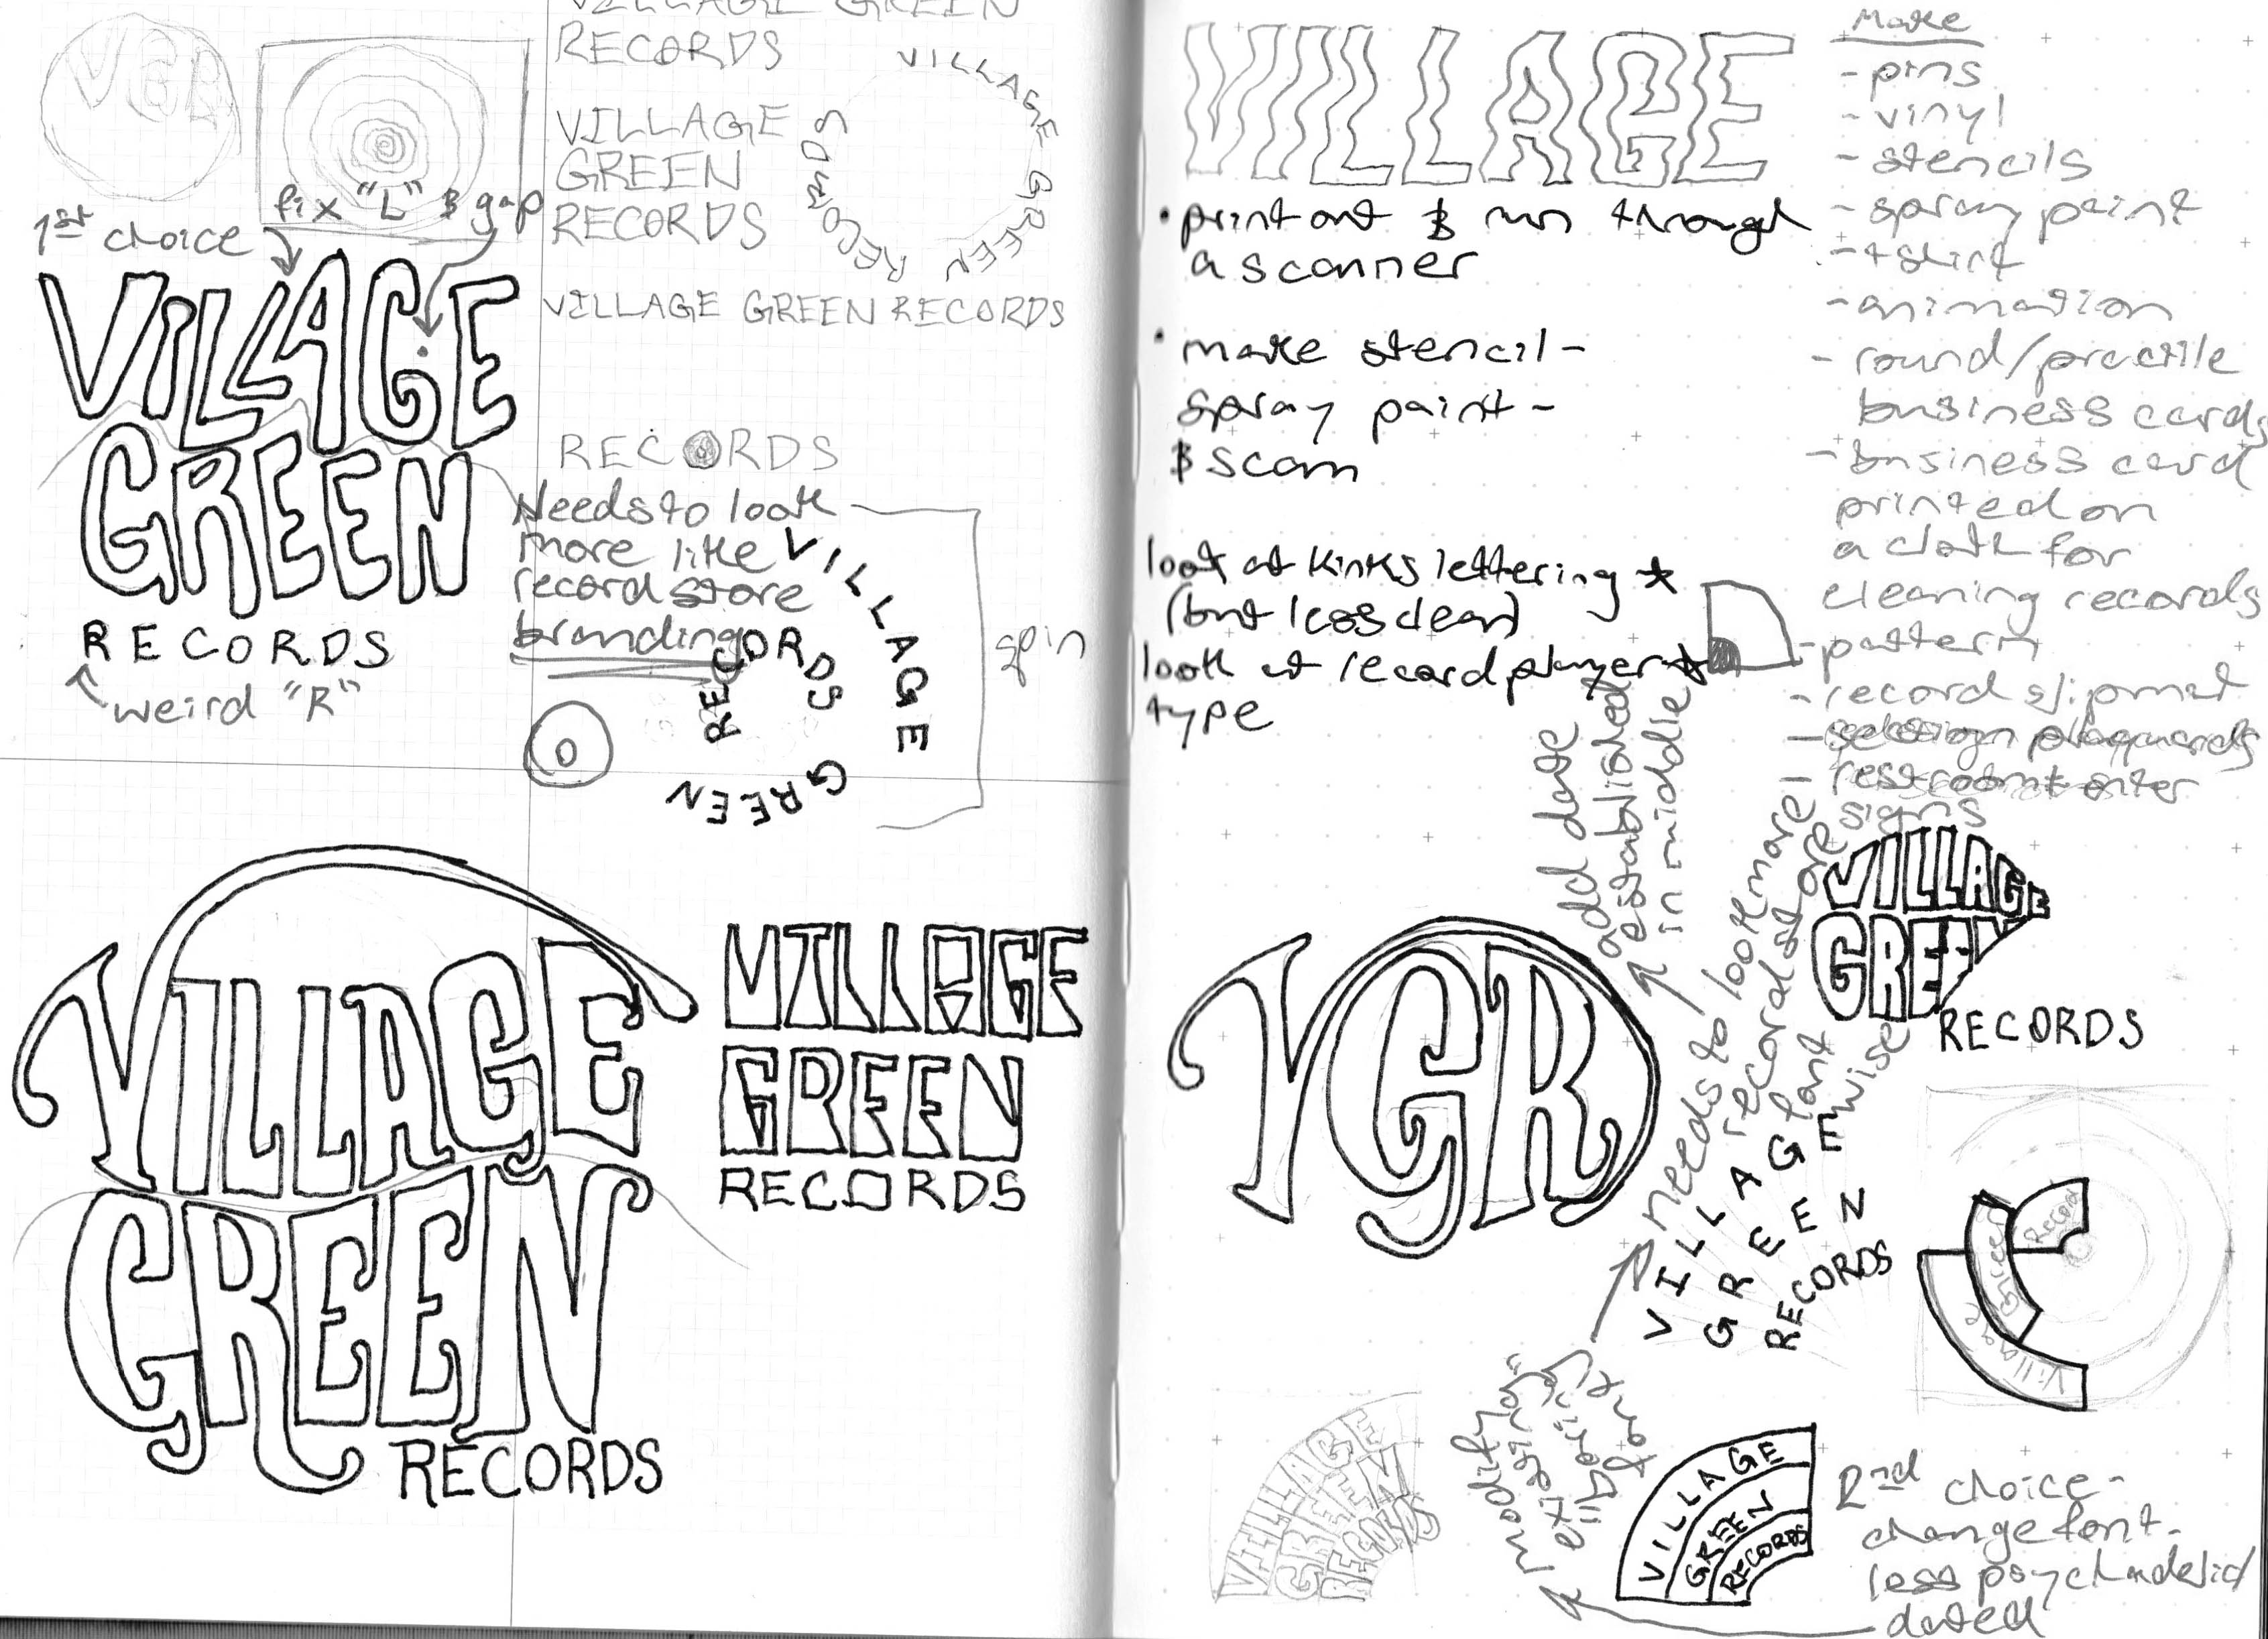 VGR
VILLAGE GREEN
RECORDS
VILLAGE
GREEN
RECORDS
VILLAGE GREEN RECORDS
VILLAGE GREEN RECORDS
fix "L" & gap
1st choice
VILLAGE
GREEN
RECORDS
weird "R"
RECORDS
Needs to look
more like
record store
branding
VILLAGE
GREEN
RECORDS
spin
VILLAGE
GREEN
RECORDS
VILLAGE
GREEN
RECORDS
VILLAGE
• print out & run through
a scanner
• make stencil -
spray paint -
& scan
look at Kinks lettering
(but less clean)
look at record player
type
Make
- pins
- vinyl
- stencils
- spray paint
- tshirt
- animation
- round/
business cards
- business card
printed on
a cloth for
cleaning records
- pattern
- record slipmat
-
-
signs
add date
established
in middle
needs to look more
record store
font
wise
VGR
VILLAGE
GREEN
RECORDS
VILLAGE
GREEN
RECORDS
Record
Green
Village
VILLAGE
GREEN
RECORDS
modify
existing
font
VILLAGE
GREEN
RECORDS
2nd choice -
change font -
less psychadelic/
dated